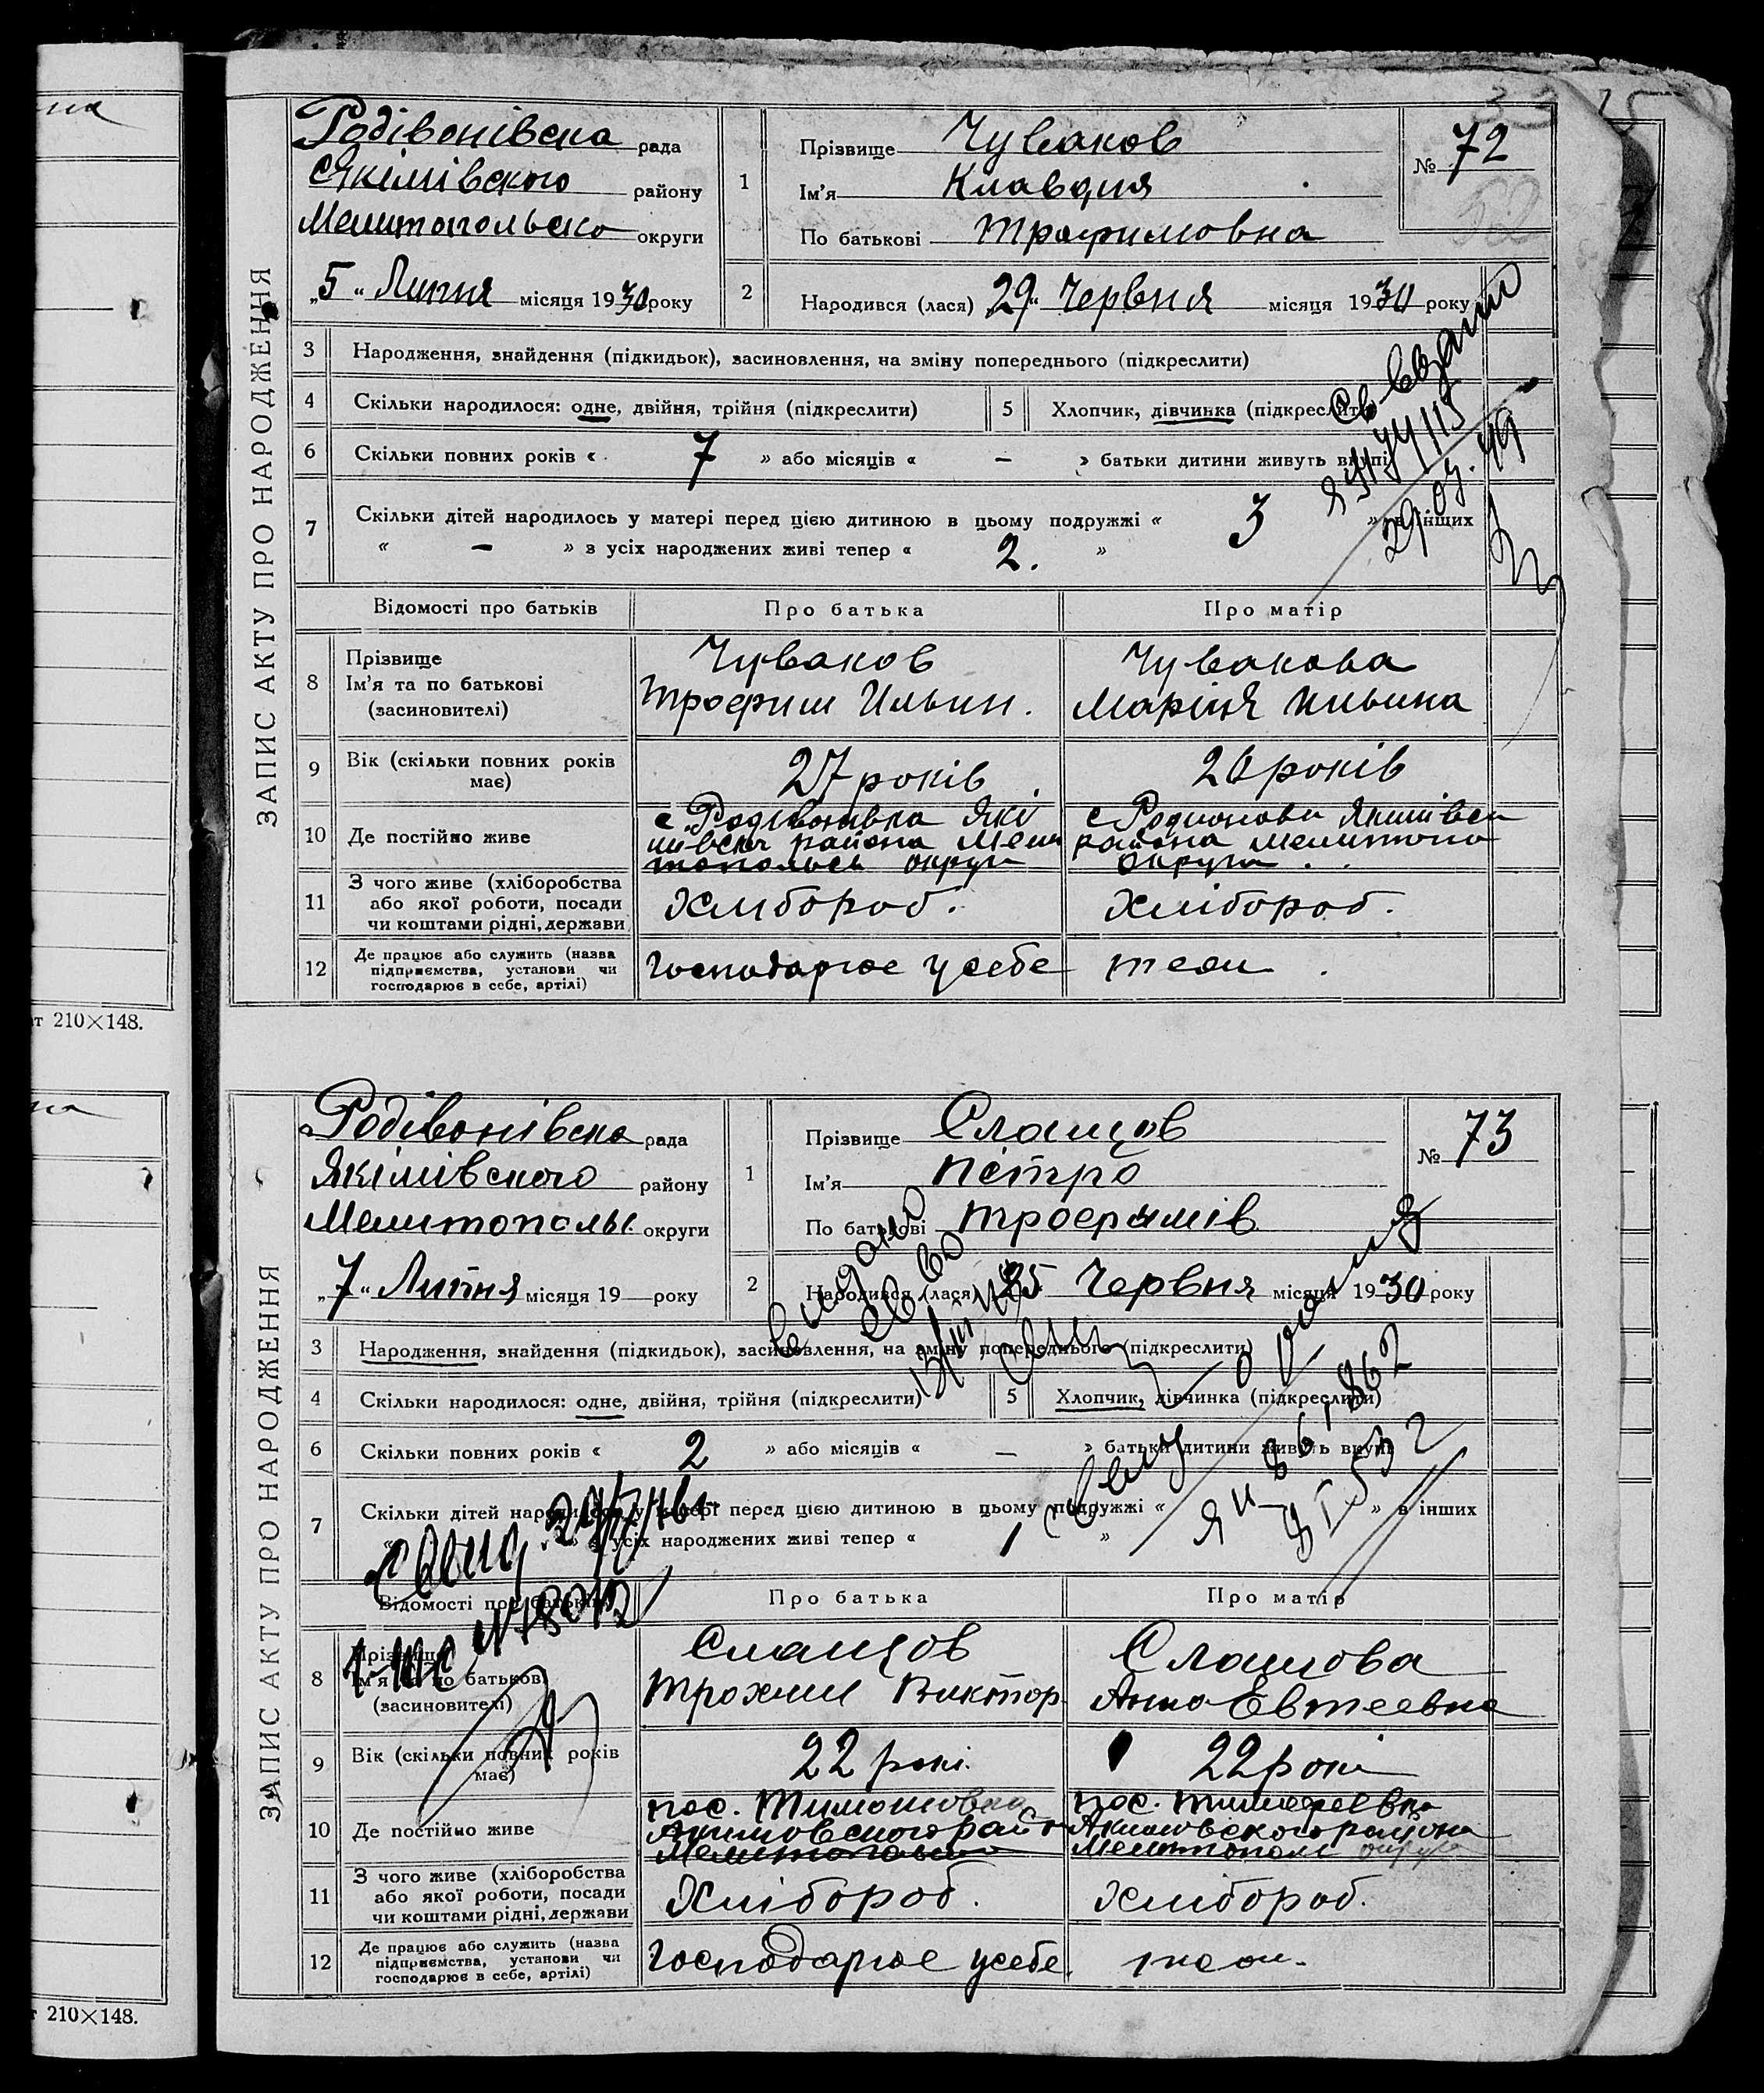 ЗАПИС АКТУ ПРО НАРОДЖЕННЯ
Родівонівска рада
Якімівского району
Мелитопольско округи
„5“ Липня місяця 1930 року
1
Прізвище Чуваков
Ім'я Клавдия
По батькові Трофимовна
№ 72
2
Народився (лася) „29“ Червня місяця 1930 року
3 Народження, знайдення (підкидьок), засиновлення, на зміну попереднього (підкреслити)
4 Скільки народилося: одне, двійня, трійня (підкреслити)
5 Хлопчик, дівчинка (підкреслити)
6 Скільки повних років « 7 » або місяців « — » батьки дитини живуть вкупі
7 Скільки дітей народилось у матері перед цією дитиною в цьому подружжі « 3 » в інших
« — » з усіх народжених живі тепер « 2. »
29.03.49
Відомості про батьків Про батька Про матір
8 Прізвище
Ім'я та по батькові
(засиновителі)
Чуваков
Трофим Ильин.
Чувакова
Марія Ильина
9 Вік (скільки повних років має)
27 років
26 років
10 Де постійно живе
с Родівонівка Які
мівськ района Мели
топольск округи
с Родионовки Якимівск
района Мелитопо
округи.
11 З чого живе (хліборобства
або якої роботи, посади
чи коштами рідні, держави
Хлибороб.
Хлібороб.
12 Де працює або служить (назва
підприємства, установи чи
господарює в себе, артілі)
Господарює у себе
теж
т 210×148.
ЗАПИС АКТУ ПРО НАРОДЖЕННЯ
Родівонівска рада
Якімівского району
Мелитополь. округи
„7“ Липня місяця 19 року
1
Прізвище Слащов
Ім'я Пётро
По батькові Трофимів
№ 73
2
Народився (лася) 25 Червня місяця 1930 року
3 Народження, знайдення (підкидьок), засиновлення, на зміну попереднього (підкреслити)
4 Скільки народилося: одне, двійня, трійня (підкреслити)
5 Хлопчик, дівчинка (підкреслити)
6 Скільки повних років « 2 » або місяців « — » батьки дитини живуть вкупі
7 Скільки дітей народилось у матері перед цією дитиною в цьому подружжі « » в інших
« » з усіх народжених живі тепер « 1 »
Відомості про батьків Про батька Про матір
8 Прізвище
Ім'я та по батькові
(засиновителі)
Слащов
Трохим Виктор
Слащова
Анна Евтеевна
9 Вік (скільки повних років має)
22 рокі.
22 рокі
10 Де постійно живе
пос. Тимошовка
Акимовского рай
Мелитополь
пос. Тимофеевка
Акимовского района
Мелитополь округа
11 З чого живе (хліборобства
або якої роботи, посади
чи коштами рідні, держави
Хлібороб.
Хлібороб.
12 Де працює або служить (назва
підприємства, установи чи
господарює в себе, артілі)
Господарює у себе.
теж.
т 210×148.